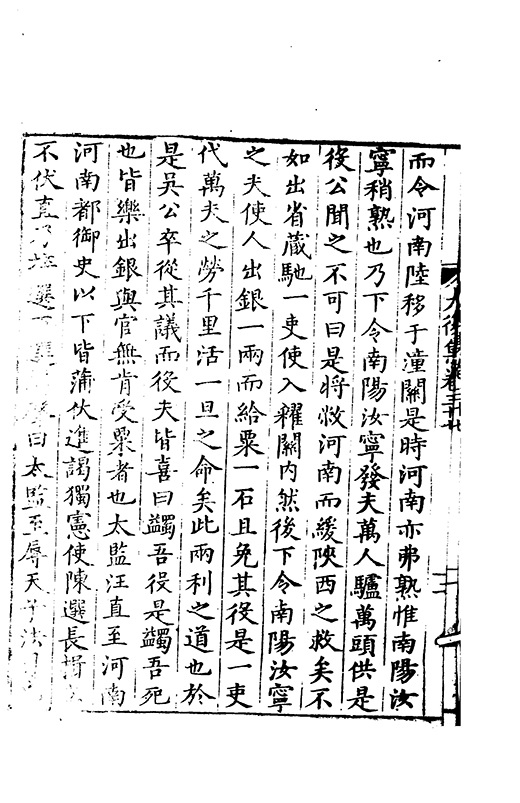 而令河南陸移于潼關是時河南亦弗熟惟南陽汝
寧稍熟也乃下令南陽汝寧發夫萬人驢萬頭供是
役公聞之不可曰是將救河南而緩陝西之救矣不
如出省蔵馳一吏使入糴關内然後下令南陽汝寧
之夫使人出銀一兩而給粟一石且免其役是一吏
代萬夫之勞千里活一旦之命矣此兩利之道也於
是吳公卒從其議而役夫皆喜曰蠲吾役是蠲吾死
也皆樂出銀與官無肯受粟者也太監汪直至河南
河南都御史以下皆蒲伏進謁獨憲使陳選長揖
不伏直乃 選 曰太監至辱天子法